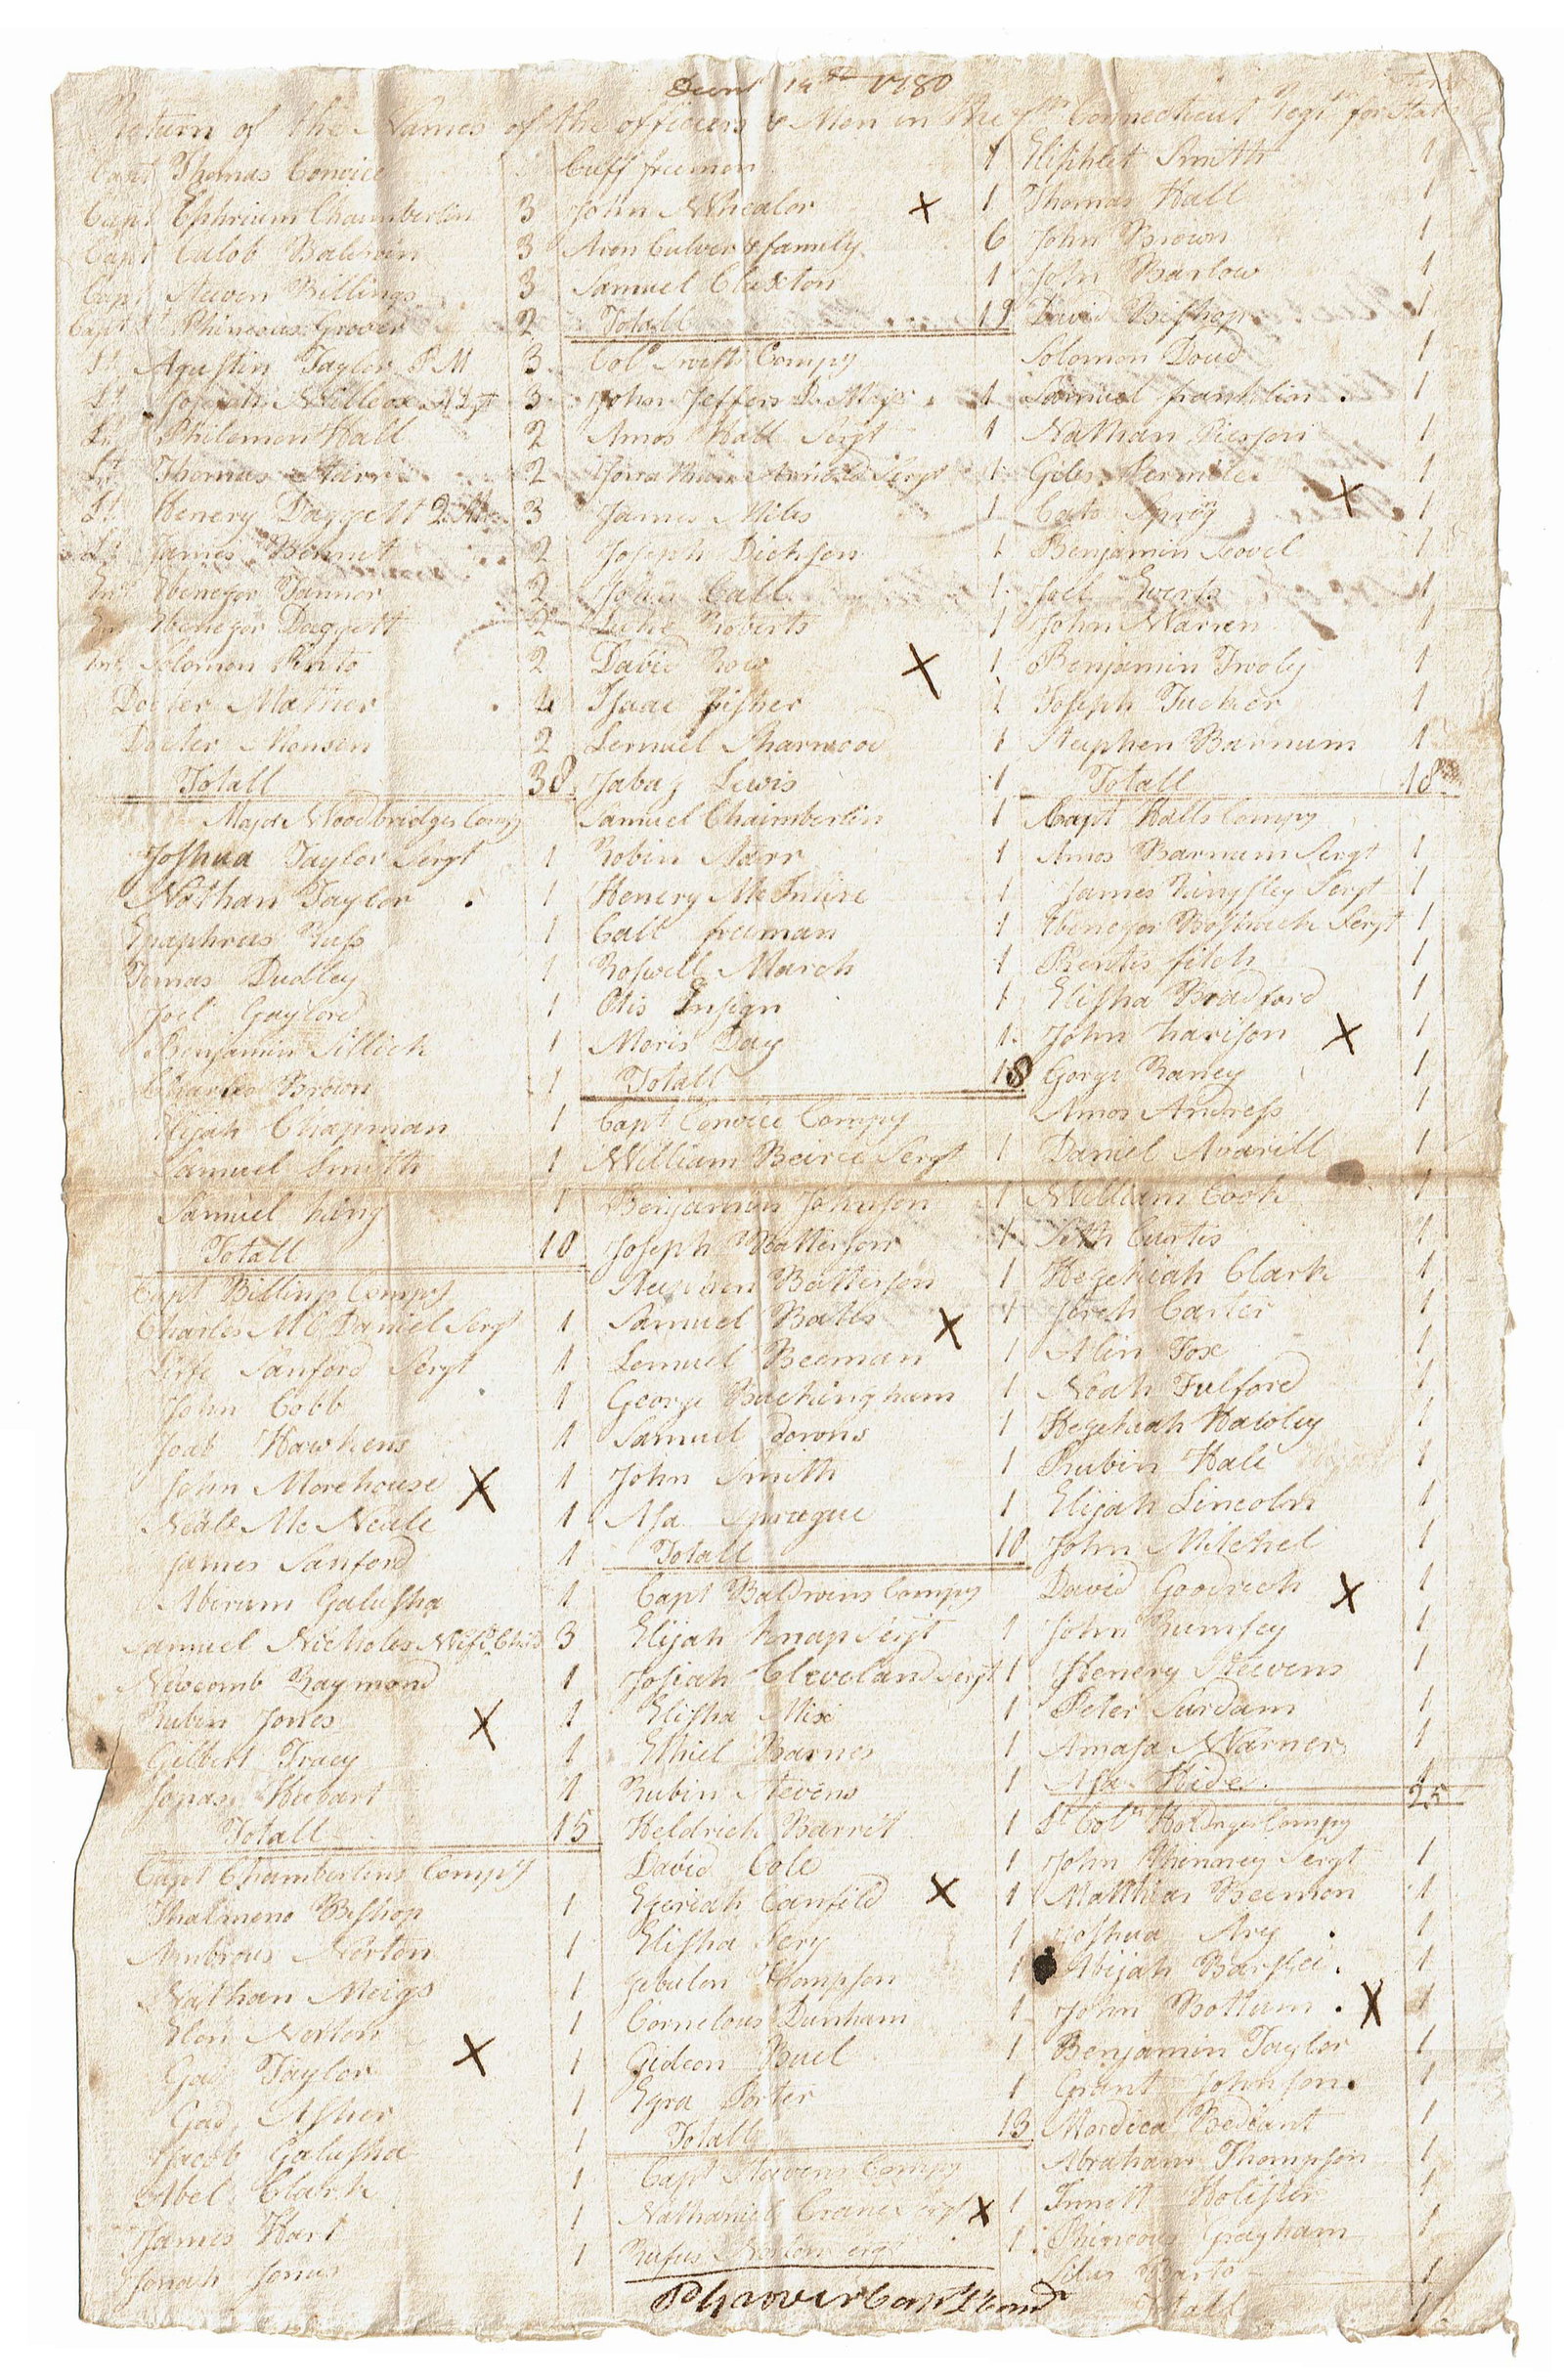 June 14th 1780
Return of the Names of the officers & Men in the 7th Connecticut Regt for Hats
Capt Thomas Converce
Capt Ephrium Chamberlin 3
Capt Calob Baldwin 3
Capt Steeven Billings 3
Capt Lt Phineous Grover 2
Lt Agustin Taylor P M 3
Lt Josiah Willcox Adjt 3
Lt Philemon Hall 2
Lt Thomas Starr 2
Lt Henery Daggett 2. Mr. 3
Lt James Bennet 2
Ens Ebenezor Tannor 2
Ens Ebenezor Daggett 2
Ens Solomon Pinto 2
Docter Mather 4
Docter Monson 2
Totall 38
Major Woodbridges Compy
Joshua Taylor Sergt 1
Nathan Taylor 1
Epaphras Russ 1
Tomas Dudley 1
Joel Gaylord 1
Benjamin Sillick 1
Charles Brown 1
Elijah Chapman 1
Samuel Smith 1
Samuel King 1
Totall 10
Capt Billings Compy
Charles Mc Daniel Sergt 1
Sanford Sergt 1
John Cobb 1
Joab Hawkens 1
John Morehouse X 1
Neale Mc Neale 1
James Sanford 1
Abirum Galusha 1
Samuel Nicholes Wife & Child 3
Newcomb Raymond 1
Rubin Jones X 1
Gilbert Tracy 1
Jonas Hubart 1
Totall 15
Capt Chamberlins Compy
Thalmeno Bishop 1
Ambrous Norton 1
Nathan Meigs 1
Elon Norton 1
Gad Taylor X 1
Gad Asher 1
Jacob Galusha 1
Abel Clark 1
James Hart 1
Jonah Jones 1
Cuff freeman 1
John Whealor X 1
Aron Culver & family 6
Samuel Claxton 1
Totall 19
Colo Swifts Compy
John Jeffers D. Major 1
Amos Hall Sergt 1
Jonathan Arnold Sergt 1
James Miles 1
Joseph Dickson 1
John Call 1
Luke Roberts 1
David Row X 1
Isaac Fisher 1
Lemuel Sharwood 1
Jabaz Lewis 1
Samuel Chaimberlin 1
Robin Starr 1
Henery Mc Intire 1
Call freeman 1
Roswell March 1
Otis Ensign 1
Moris Day 1
Totall 18
Capt Converce Compy
William Peirce Sergt 1
Benjamin Johnson 1
Joseph Batterson 1
Steephen Batterson 1
Samuel Batts X 1
Lemuel Beeman 1
George Buckingham 1
Samuel Downs 1
John Smith 1
Asa Sprague 1
Totall 10
Capt Baldwins Compy
Elijah Knap Sergt 1
Josiah Cleveland Sergt 1
Elisha Mix 1
Ethiel Barnes 1
Rubin Stevens 1
Heldrich Barret 1
David Cole 1
Ezeriah Canfild X 1
Elisha Sery 1
Zebulon Thompson 1
Cornelous Dunham 1
Gideon Buel 1
Ezra Porter 1
Totall 13
Capt Steavens Compy
Nathaniel Crane Sergt X 1
Rufus Norton Sergt 1
P Grover Capt Lt Comdt
Eliphlet Smith 1
Thomas Hall 1
John Brown 1
John Barlow 1
David Bishop 1
Solomon Doud 1
Samuel franklin 1
Nathan Pierson 1
Giles 1
Cato Sprog X 1
Benjamin Scovel 1
Joel Everts 1
John Warren 1
Benjamin Twoly 1
Joseph Tucker 1
Steephen Barnum 1
Totall 18
Capt Halls Compy
Amos Barnum Sergt 1
James Kingsley Sergt 1
Ebenezor Bostwick Sergt 1
Prentis fitch 1
Elisha Bradford 1
John harison X 1
Gorge Raney 1
Amos Andress 1
Daniel Avarill 1
William Cook 1
Seth Curtis 1
Hezekiah Clark 1
Jereh Carter 1
Alin Fox 1
Noah Fulford 1
Hezekiah Hawley 1
Rubin Hale 1
Elijah Lincoln 1
John Mitchel 1
David Goodrich X 1
John Rumsey 1
Henery Steevens 1
Peter Surdam 1
Amasa Warner 1
Asa Hide 1
25
Lt Coln Holdrges Compy
John Phinney Sergt 1
Matthias Beemon 1
Joshua Ary 1
Abijah Barslee 1
John Bottum X 1
Benjamin Taylor 1
Grant Johnson 1
Mordica Bedeant 1
Abraham Thompson 1
Innett Holister 1
Phineous Grayham 1
Silus Barto 1
Totall 1